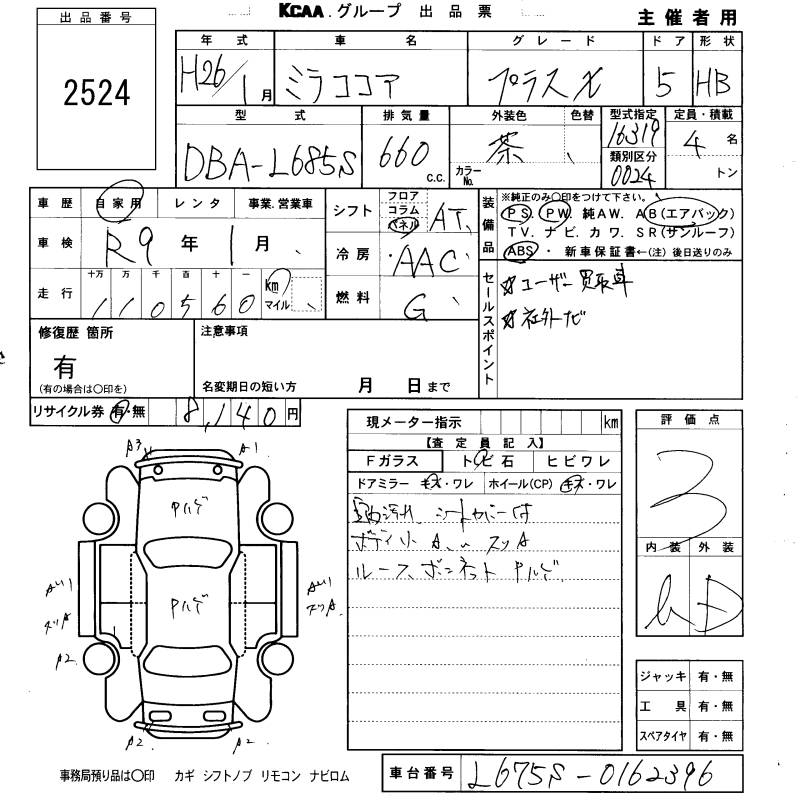 KCAA.グループ 出品票
主催者用
出品番号
2524
年式 車名 グレード ドア 形状
H26/1月 ミラココア プラスX 5 HB
型式 排気量 外装色 色替 型式指定 定員・積載
DBA-L685S 660 c.c. カラーNo. 茶 16319 4名
類別区分
0024 トン
車歴 自家用 レンタ 事業.営業車
車検 R9年1月
走行 十万 万 千 百 十 一 km マイル
110560
シフト フロア コラム パネル AT
冷房 AAC
燃料 G
装備品
※純正のみ○印をつけて下さい。
PS. PW. 純AW. AB(エアバック)
TV. ナビ. カワ. SR(サンルーフ)
ABS・新車保証書←(注)後日送りのみ
セールスポイント
ユーザー買取車
社外ナビ
修復歴 箇所
有
(有の場合は○印を)
注意事項
名変期日の短い方 月 日まで
リサイクル券 有・無 8,140円
現メーター指示 km
【査定員記入】
Fガラス トビ石 ヒビワレ
ドアミラー キズ・ワレ ホイール(CP) キズ・ワレ
シートカバー付
ボディ小 A
ルーフ、ボンネット ヤルゲ
評価点
3
内装 外装
D
A3 A1
ヤルゲ
ヤルゲ
A2 A2
A2 A2
ジャッキ 有・無
工具 有・無
スペアタイヤ 有・無
事務局預り品は○印 カギ シフトノブ リモコン ナビロム
車台番号 L675S-0162396